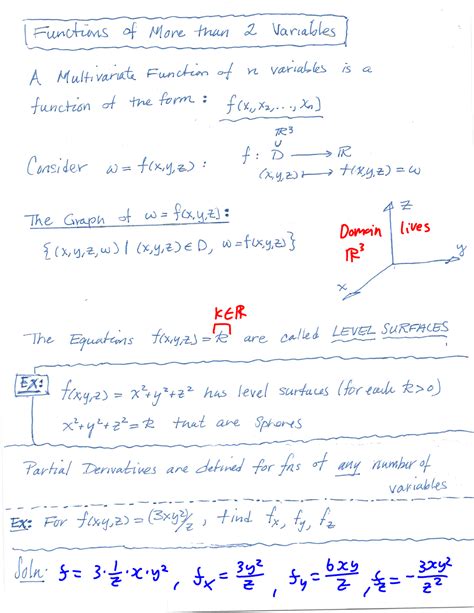 Functions of More than 2 Variables
A Multivariate Function of n variables is a
function of the form: f(x₁, x₂, ..., xₙ)
ℝ³
∪
Consider w = f(x,y,z): f: D → ℝ
(x,y,z) ↦ f(x,y,z) = w
The Graph of w = f(x,y,z):
{(x,y,z,w) | (x,y,z) ∈ D, w = f(x,y,z)}
z
Domain lives
ℝ³
y
x
k∈ℝ
The Equations f(x,y,z) = k are called LEVEL SURFACES
Ex: f(x,y,z) = x²+y²+z² has level surfaces (for each k>0)
x²+y²+z² = k that are spheres
Partial Derivatives are defined for fns of any number of
variables
Ex: For f(x,y,z) = (3xy²)/z, find fₓ, f_y, f_z
Soln: f = 3·1/z·x·y², fₓ = 3y²/z, f_y = 6xy/z, f_z = -3xy²/z²